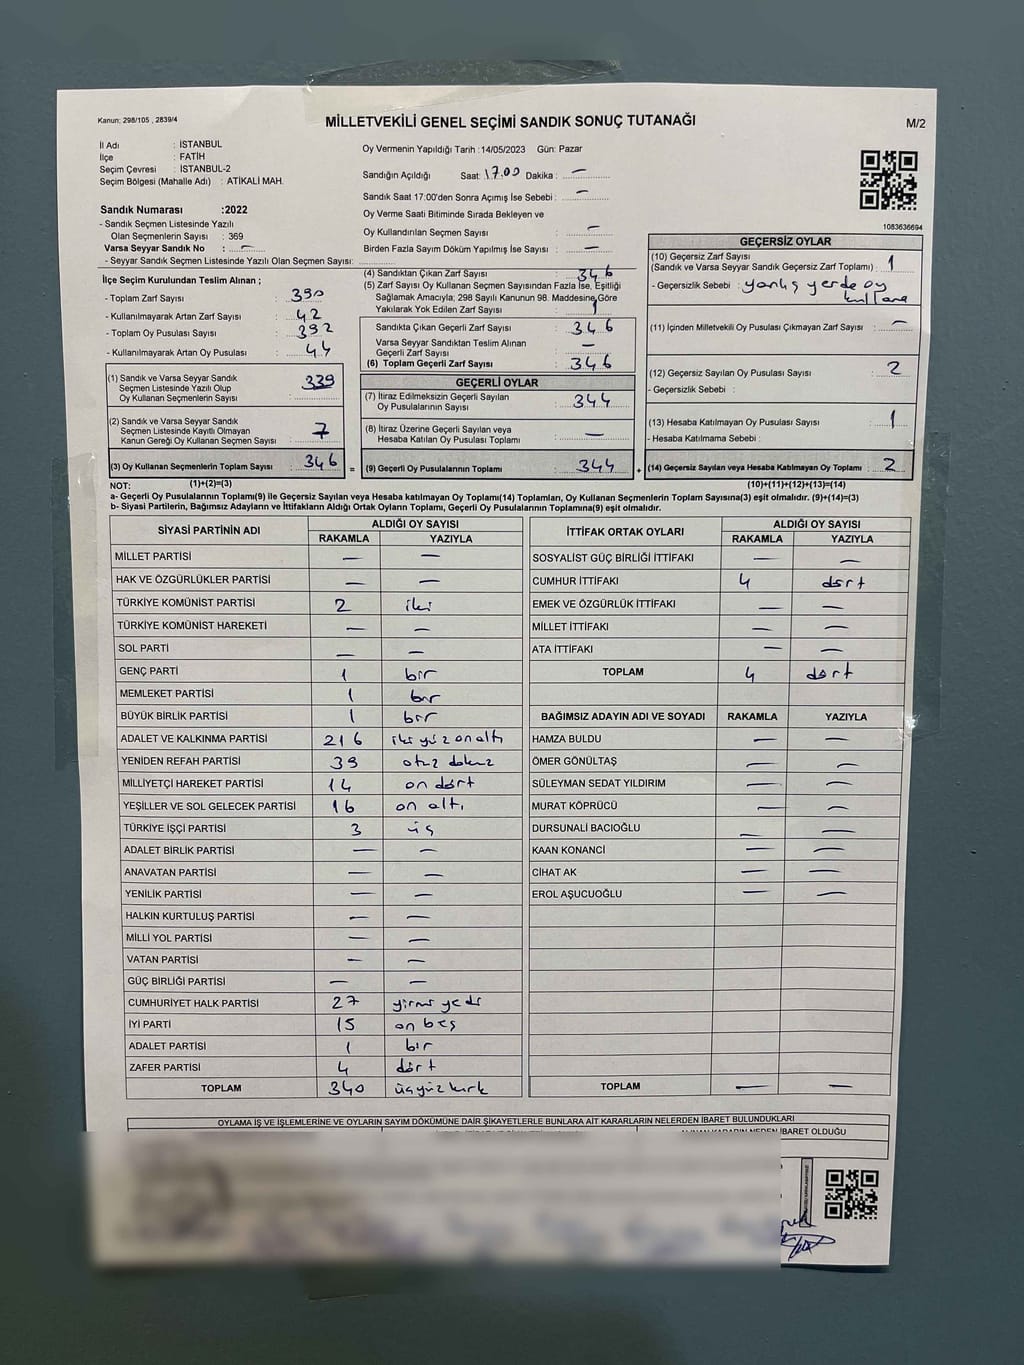 Kanun; 298/105 , 2839/4
MİLLETVEKİLİ GENEL SEÇİMİ SANDIK SONUÇ TUTANAĞI
M/2
İl Adı : İSTANBUL
İlçe : FATİH
Seçim Çevresi : İSTANBUL-2
Seçim Bölgesi (Mahalle Adı) : ATİKALİ MAH.
Sandık Numarası :2022
- Sandık Seçmen Listesinde Yazılı
Olan Seçmenlerin Sayısı : 369
Varsa Seyyar Sandık No : —
- Seyyar Sandık Seçmen Listesinde Yazılı Olan Seçmen Sayısı:
Oy Vermenin Yapıldığı Tarih :14/05/2023 Gün: Pazar
Sandığın Açıldığı Saat: 17.00 Dakika : —
Sandık Saat 17:00'den Sonra Açımış İse Sebebi : —
Oy Verme Saati Bitiminde Sırada Bekleyen ve
Oy Kullandırılan Seçmen Sayısı : —
Birden Fazla Sayım Döküm Yapılmış İse Sayısı : —
1083636694
İlçe Seçim Kurulundan Teslim Alınan ;
- Toplam Zarf Sayısı : 390
- Kullanılmayarak Artan Zarf Sayısı : 42
- Toplam Oy Pusulası Sayısı : 392
- Kullanılmayarak Artan Oy Pusulası : 44
(1) Sandık ve Varsa Seyyar Sandık
Seçmen Listesinde Yazılı Olup
Oy Kullanan Seçmenlerin Sayısı : 339
(2) Sandık ve Varsa Seyyar Sandık
Seçmen Listesinde Kayıtlı Olmayan
Kanun Gereği Oy Kullanan Seçmen Sayısı : 7
(3) Oy Kullanan Seçmenlerin Toplam Sayısı : 346
(1)+(2)=(3)
(4) Sandıktan Çıkan Zarf Sayısı : 346
(5) Zarf Sayısı Oy Kullanan Seçmen Sayısından Fazla İse, Eşitliği
Sağlamak Amacıyla; 298 Sayılı Kanunun 98. Maddesine Göre
Yakılarak Yok Edilen Zarf Sayısı :
Sandıkta Çıkan Geçerli Zarf Sayısı : 346
Varsa Seyyar Sandıktan Teslim Alınan
Geçerli Zarf Sayısı : —
(6) Toplam Geçerli Zarf Sayısı : 346
GEÇERLİ OYLAR
(7) İtiraz Edilmeksizin Geçerli Sayılan
Oy Pusulalarının Sayısı : 344
(8) İtiraz Üzerine Geçerli Sayılan veya
Hesaba Katılan Oy Pusulası Toplamı : —
= (9) Geçerli Oy Pusulalarının Toplamı : 344
GEÇERSİZ OYLAR
(10) Geçersiz Zarf Sayısı
(Sandık ve Varsa Seyyar Sandık Geçersiz Zarf Toplamı) : 1
- Geçersizlik Sebebi : yanlış yerde oy
kullana
(11) İçinden Milletvekili Oy Pusulası Çıkmayan Zarf Sayısı : —
(12) Geçersiz Sayılan Oy Pusulası Sayısı : 2
- Geçersizlik Sebebi :
(13) Hesaba Katılmayan Oy Pusulası Sayısı : 1
- Hesaba Katılmama Sebebi :
+ (14) Geçersiz Sayılan veya Hesaba Katılmayan Oy Toplamı : 2
(10)+(11)+(12)+(13)=(14)
NOT:
a- Geçerli Oy Pusulalarının Toplamı(9) ile Geçersiz Sayılan veya Hesaba katılmayan Oy Toplamı(14) Toplamları, Oy Kullanan Seçmenlerin Toplam Sayısına(3) eşit olmalıdır. (9)+(14)=(3)
b- Siyasi Partilerin, Bağımsız Adayların ve İttifakların Aldığı Ortak Oyların Toplamı, Geçerli Oy Pusulalarının Toplamına(9) eşit olmalıdır.
SİYASİ PARTİNİN ADI ALDIĞI OY SAYISI
RAKAMLA YAZIYLA
MİLLET PARTİSİ — —
HAK VE ÖZGÜRLÜKLER PARTİSİ — —
TÜRKİYE KOMÜNİST PARTİSİ 2 iki
TÜRKİYE KOMÜNİST HAREKETİ — —
SOL PARTİ — —
GENÇ PARTİ 1 bir
MEMLEKET PARTİSİ 1 bir
BÜYÜK BİRLİK PARTİSİ 1 bir
ADALET VE KALKINMA PARTİSİ 216 iki yüz on altı
YENİDEN REFAH PARTİSİ 39 otuz dokuz
MİLLİYETÇİ HAREKET PARTİSİ 14 on dört
YEŞİLLER VE SOL GELECEK PARTİSİ 16 on altı
TÜRKİYE İŞÇİ PARTİSİ 3 üç
ADALET BİRLİK PARTİSİ — —
ANAVATAN PARTİSİ — —
YENİLİK PARTİSİ — —
HALKIN KURTULUŞ PARTİSİ — —
MİLLİ YOL PARTİSİ — —
VATAN PARTİSİ — —
GÜÇ BİRLİĞİ PARTİSİ — —
CUMHURİYET HALK PARTİSİ 27 yirmi yedi
İYİ PARTİ 15 on beş
ADALET PARTİSİ 1 bir
ZAFER PARTİSİ 4 dört
TOPLAM 340 üçyüz kırk
İTTİFAK ORTAK OYLARI ALDIĞI OY SAYISI
RAKAMLA YAZIYLA
SOSYALİST GÜÇ BİRLİĞİ İTTİFAKI — —
CUMHUR İTTİFAKI 4 dört
EMEK VE ÖZGÜRLÜK İTTİFAKI — —
MİLLET İTTİFAKI — —
ATA İTTİFAKI — —
TOPLAM 4 dört
BAĞIMSIZ ADAYIN ADI VE SOYADI RAKAMLA YAZIYLA
HAMZA BULDU — —
ÖMER GÖNÜLTAŞ — —
SÜLEYMAN SEDAT YILDIRIM — —
MURAT KÖPRÜCÜ — —
DURSUNALİ BACIOĞLU — —
KAAN KONANCİ — —
CİHAT AK — —
EROL AŞUCUOĞLU — —
TOPLAM — —
OYLAMA İŞ VE İŞLEMLERİNE VE OYLARIN SAYIM DÖKÜMÜNE DAİR ŞİKAYETLERLE BUNLARA AİT KARARLARIN NELERDEN İBARET BULUNDUKLARI
ALINAN KARARIN NEDEN İBARET OLDUĞU